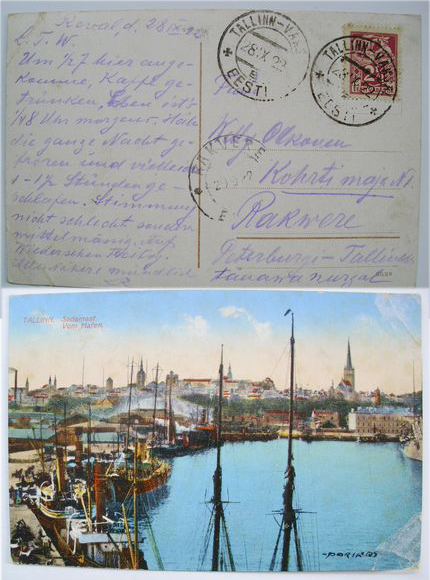 Reval d, 28 IX 22
L. T. W.
Um 1/2 7 hier ange-
komme, Kaffe ge-
trunken, eben ist's
1/4 8 Uhr morgens. Habe
die ganze Nacht ge-
froren und vielleicht
1-1 1/2 Stunden ge-
schlafen. Stimmung
nicht schlecht sondern
mittelmässig. Auf
Wiedersehen
mündlich
TALLINN-VAKSAL
28.IX.22
EESTI
TALLINN-VAKSAL
28.IX.22
EESTI
RAKVERE
Kohtri maja N1
Rakwere
Peterburgi-Tallinna
tänawa nurgal
TALLINN. Sadamast.
Vom Hafen.